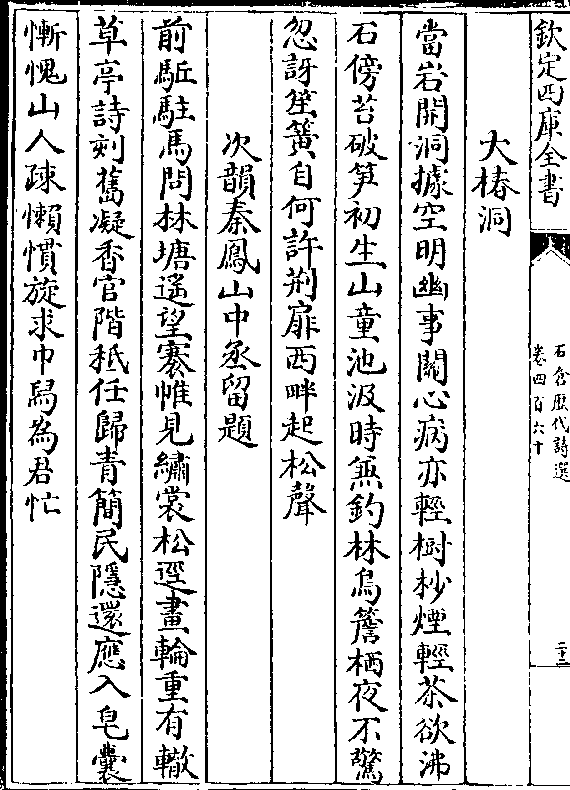 欽定四庫全書
石倉歷代詩選
卷四百六十
二十三
大椿洞
當岩開洞據空明幽事關心病亦輕樹杪煙輕茶欲沸
石傍苔破笋初生山童池汲時無釣林鳥簷栖夜不驚
忽訝笙簧自何許荆扉西畔起松聲
次韻秦鳳山中丞留題
前駈駐馬問林塘遙望褰帷見繡裳松逕畫輪重有轍
草亭詩刻舊凝香官階秪任歸青簡民隱還應入皂囊
慚愧山人踈懶慣旋求巾舄為君忙